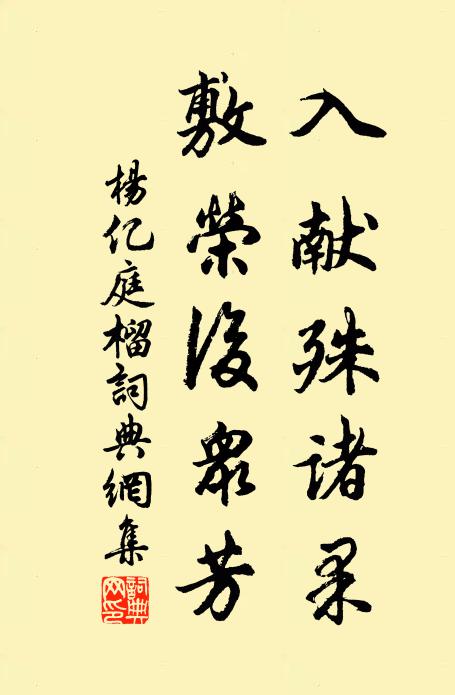 入献殊诸果
敷荣后众芳
杨亿庭榴词典网集
词典网印